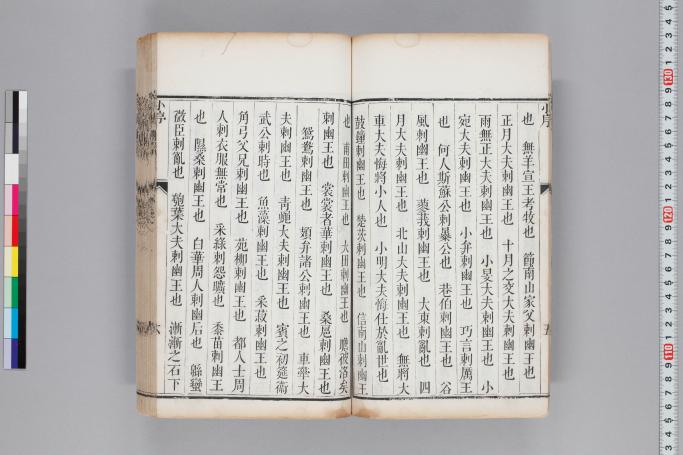 小序
五
也　無羊宣王考牧也　節南山家父刺幽王也
正月大夫刺幽王也　十月之交大夫刺幽王也
雨無正大夫刺幽王也　小旻大夫刺幽王也　小
宛大夫刺幽王也　小弁刺幽王也　巧言刺厲王
也　何人斯蘇公刺暴公也　巷伯刺幽王也　谷
風刺幽王也　蓼莪刺幽王也　大東刺亂也　四
月大夫刺幽王也　北山大夫刺幽王也　無將大
車大夫悔將小人也　小明大夫悔仕於亂世也
鼓鐘刺幽王也　楚茨刺幽王也　信南山刺幽王
也　甫田刺幽王也　大田刺幽王也　瞻彼洛矣
刺幽王也　裳裳者華刺幽王也　桑扈刺幽王也
鴛鴦刺幽王也　頍弁諸公刺幽王也　車舝大
夫刺幽王也　青蠅大夫刺幽王也　賓之初筵衛
武公刺時也　魚藻刺幽王也　采菽刺幽王也
角弓父兄刺幽王也　菀柳刺幽王也　都人士周
人刺衣服無常也　采綠刺怨曠也　黍苗刺幽王
也　隰桑刺幽王也　白華周人刺幽后也　緜蠻
微臣刺亂也　瓠葉大夫刺幽王也　漸漸之石下
小序
六